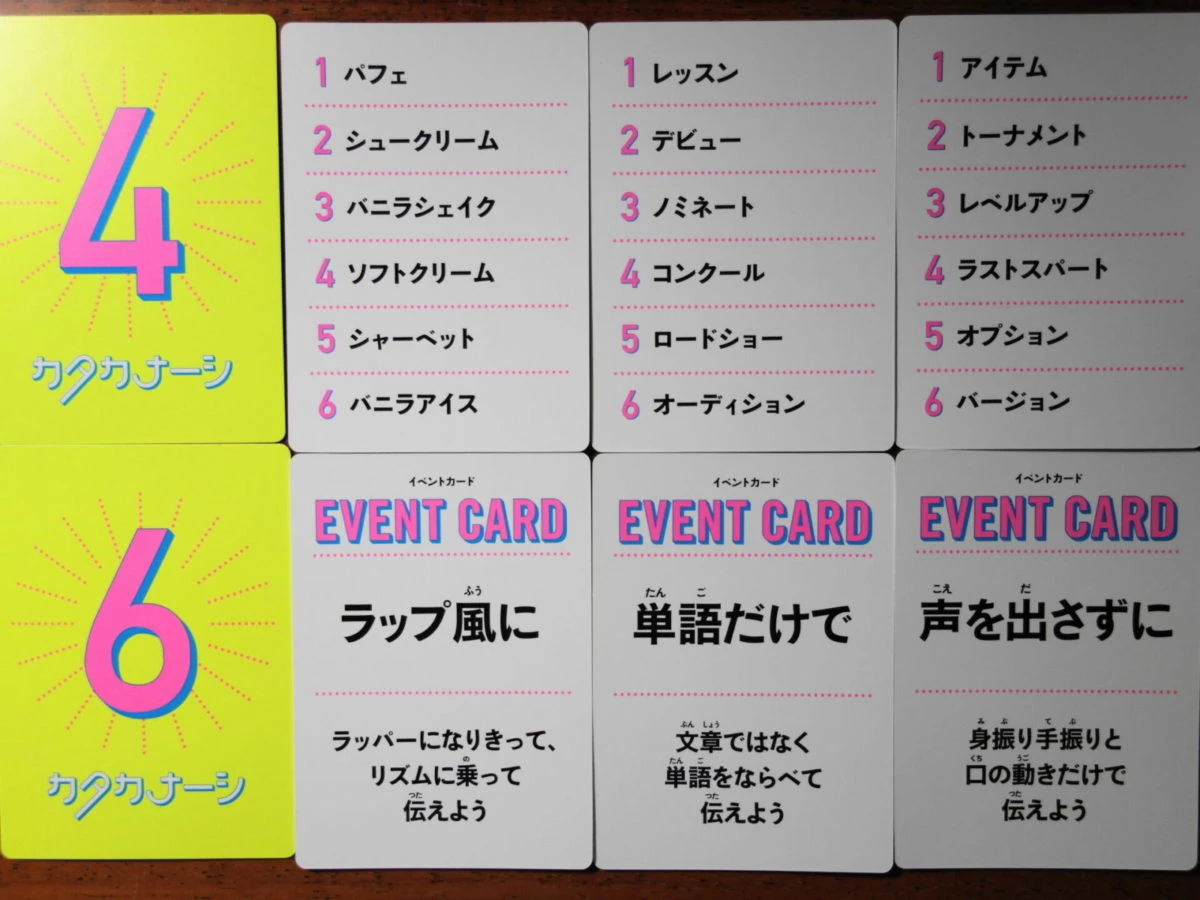 4
カタカナーシ
1 パフェ
2 シュークリーム
3 バニラシェイク
4 ソフトクリーム
5 シャーベット
6 バニラアイス
1 レッスン
2 デビュー
3 ノミネート
4 コンクール
5 ロードショー
6 オーディション
1 アイテム
2 トーナメント
3 レベルアップ
4 ラストスパート
5 オプション
6 バージョン
6
カタカナーシ
イベントカード
EVENT CARD
ふう
ラップ風に
ラッパーになりきって、
の
リズムに乗って
つた
伝えよう
イベントカード
EVENT CARD
たん ご
単語だけで
ぶん しょう
文章ではなく
たん ご
単語をならべて
つた
伝えよう
イベントカード
EVENT CARD
こえ だ
声を出さずに
み ぶ て ぶ
身振り手振りと
くち うご
口の動きだけで
つた
伝えよう